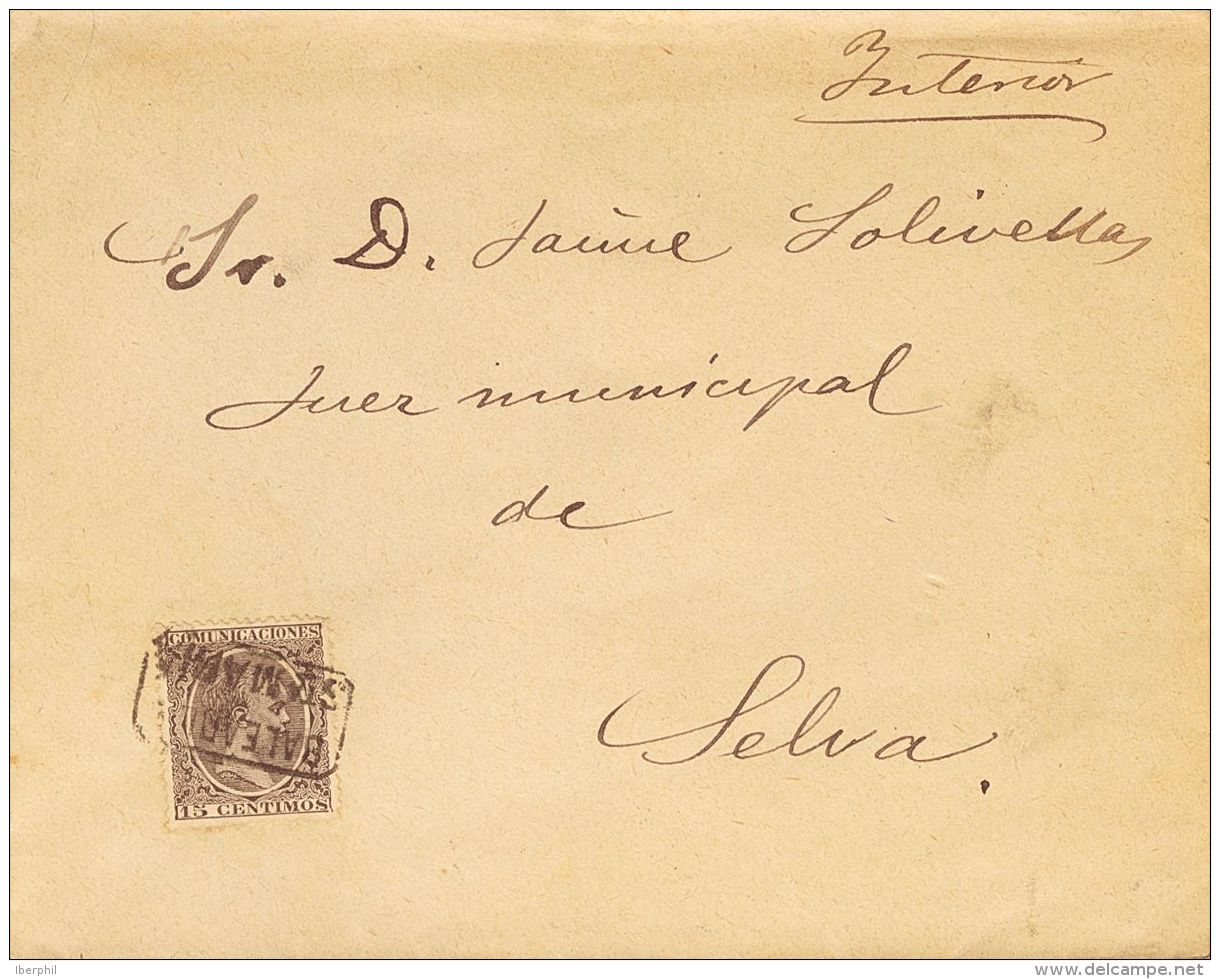 Interior
Sr. D. Jaime Solivellas
Juez municipal
de
Selva.
COMUNICACIONES
BALEAR
15 CENTIMOS
Iberphil
delcampe.net